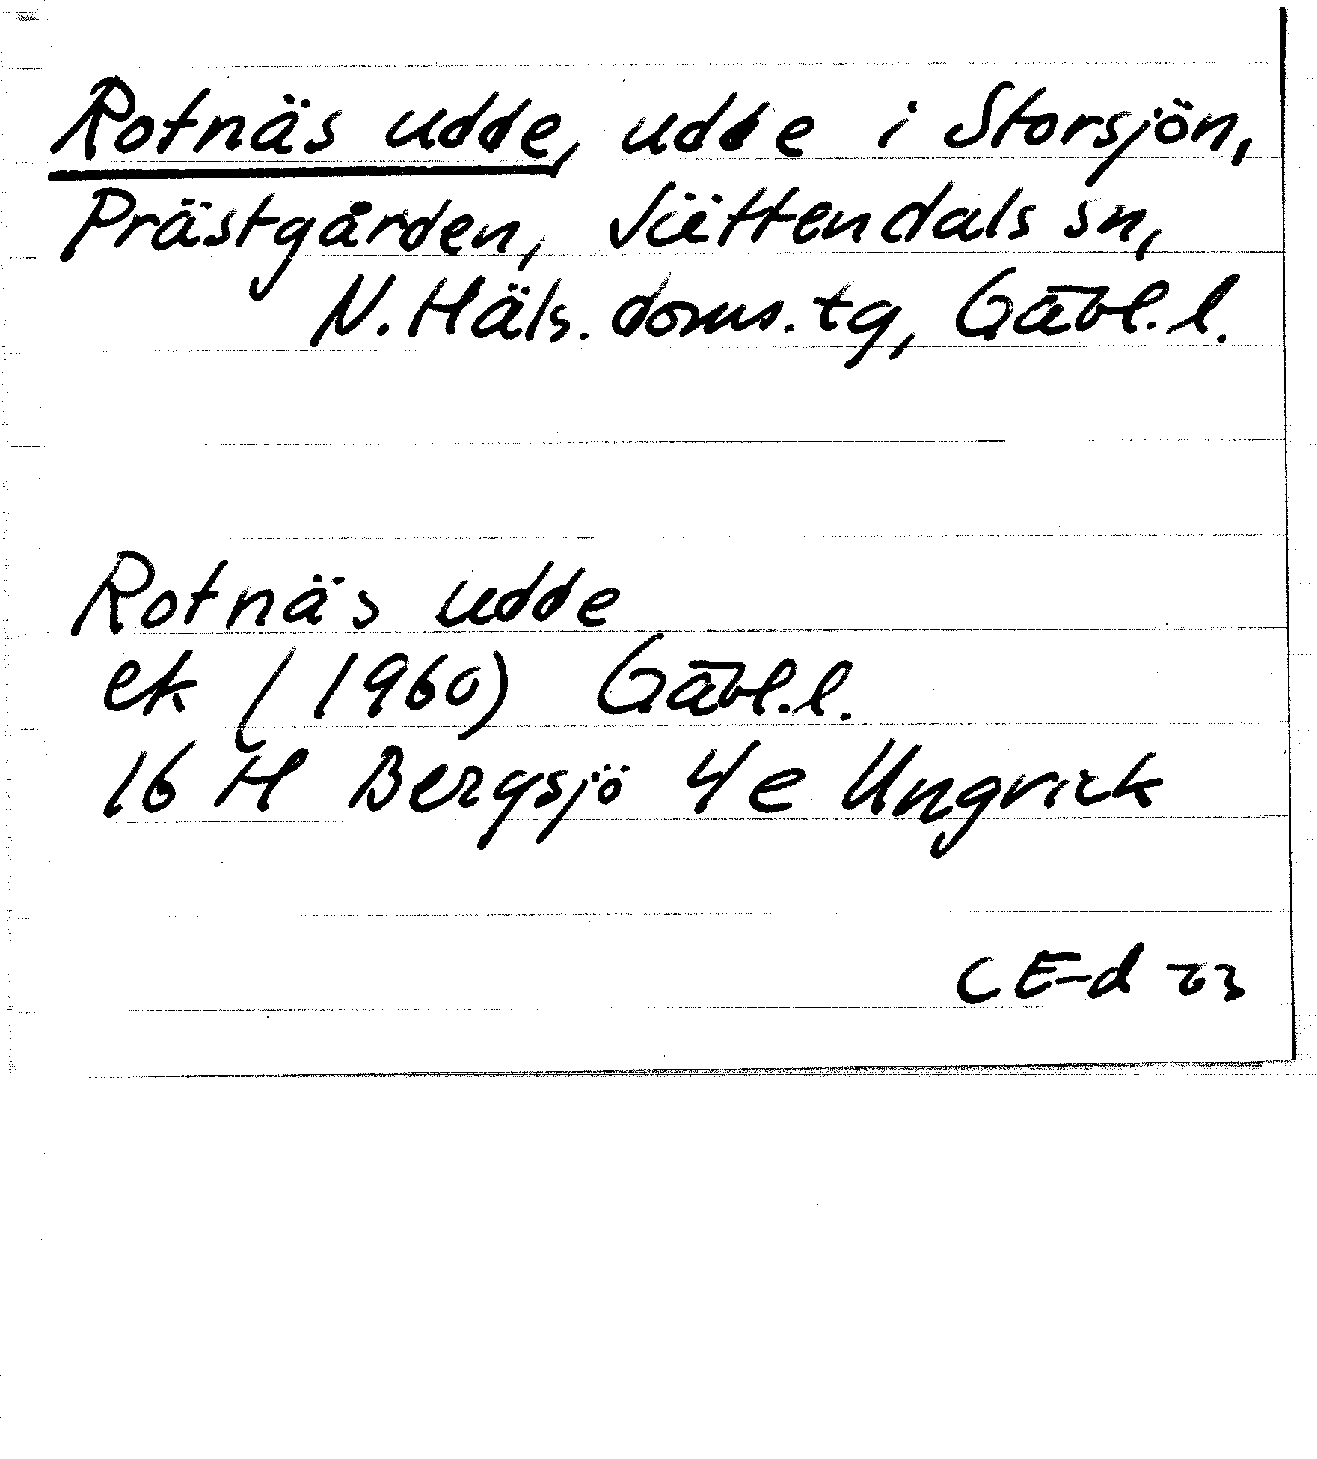 Rotnäs udde, udde i Storsjön,
Prästgården, Jättendals sn,
N. Häls. doms. tg, Gävl. l.
Rotnäs udde
ek (1960) Gävl. l.
16 H Bergsjö 4 e Ungvick
CE-d 73